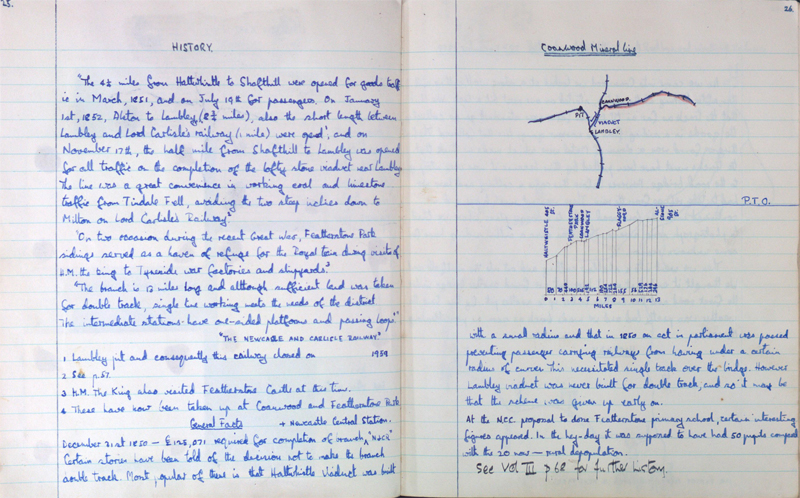 25.
HISTORY.
"The 4½ miles from Haltwhistle to Shafthill were opened for goods traff
ic in March, 1851, and on July 19th for passengers. On January
1st, 1852, Alston to Lambley (8¼ miles), also the short length between
Lambley and Lord Carlisle's railway (1 mile) were opend¹, and on
November 17th, the half mile from Shafthill to Lambley was opened
for all traffic on the completion of the lofty stone viaduct near Lambley
The line was a great convenience in working coal and limestone
traffic from Tindale Fell, avoiding the two steep inclines down to
Milton on Lord Carlisle's Railway²
"On two occasion during the recent Great War, Featherstone Park
sidings served as a haven of refuge for the Royal train during visits of
H.M. the King to Tyneside war factories and shipyards.³
"The branch is 13 miles long and although sufficient land was taken
for double track, single line working meets the needs of the district
The intermediate stations have one-sided platforms and passing loops⁴"
"THE NEWCASTLE AND CARLISLE RAILWAY."
1 Lambley pit and consequently this railway closed on 1959
2 See p.57.
3 H.M. The King also visited Featherstone Castle at this time.
4 These have now been taken up at Coanwood and Featherstone Park
General Facts + Newcastle Central Station.
December 31st 1850 — £125,071 required for completion of branch, "N&CR"
Certain stories have been told of the decision not to make the branch
double track. Most popular of these is that Haltwhistle Viaduct was built
26.
Coanwood Mineral Line
COANWOOD
PIT
VIADUCT
LAMBLEY
P.T.O.
HALTWHISTLE
FEATHERSTONE PARK
COANWOOD
LAMBLEY
SLAGGYFORD
ALSTONE
0 1 2 3 4 5 6 7 8 9 10 11 12 13
MILES
with a small radius and that in 1850 an act in parliament was passed
preventing passenger carrying railways from having under a certain
radius of curve. This necessitated single track over the bridge. However
Lambley viaduct was never built for double track, and so it may be
that the scheme was given up early on.
At the N.C.C. proposal to close Featherstone primary school, certain interesting
figures appeared. In the hey-day it was supposed to have had 50 pupils compared
with the 20 now — rural depopulation.
See Vol III p 62 for further history.